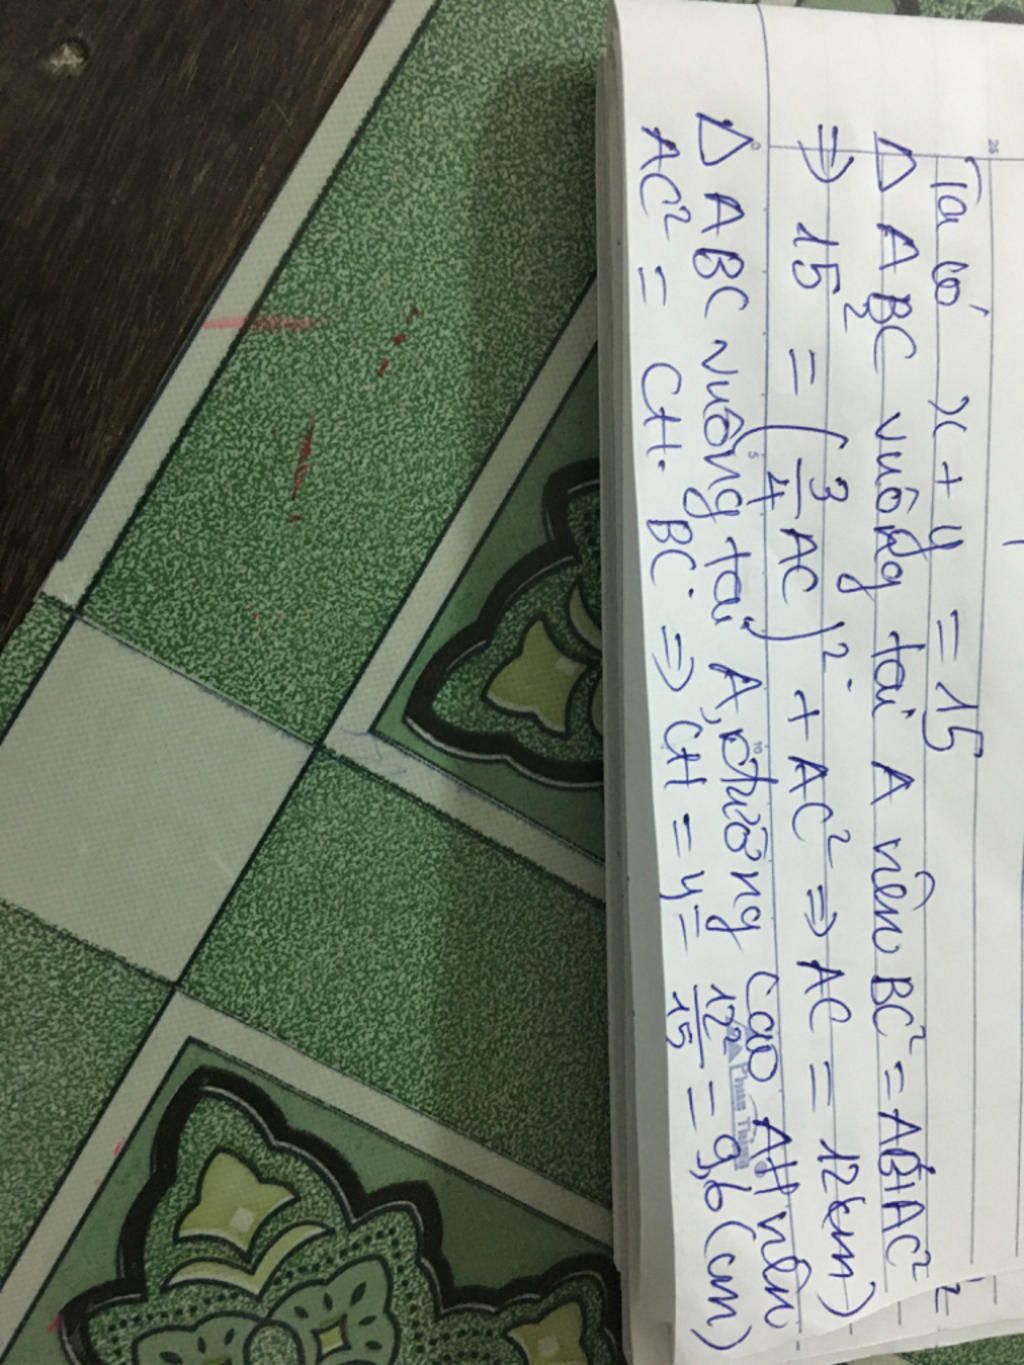 Ta có x + y = 15
Δ ABC vuông tại A nên BC² = AB² + AC²
⇒ 15² = (3/4 AC)² + AC² ⇒ AC = 12 (cm)
Δ ABC vuông tại A, đường cao AH nên
AC² = CH. BC ⇒ CH = y = 12²/15 = 9,6 (cm)